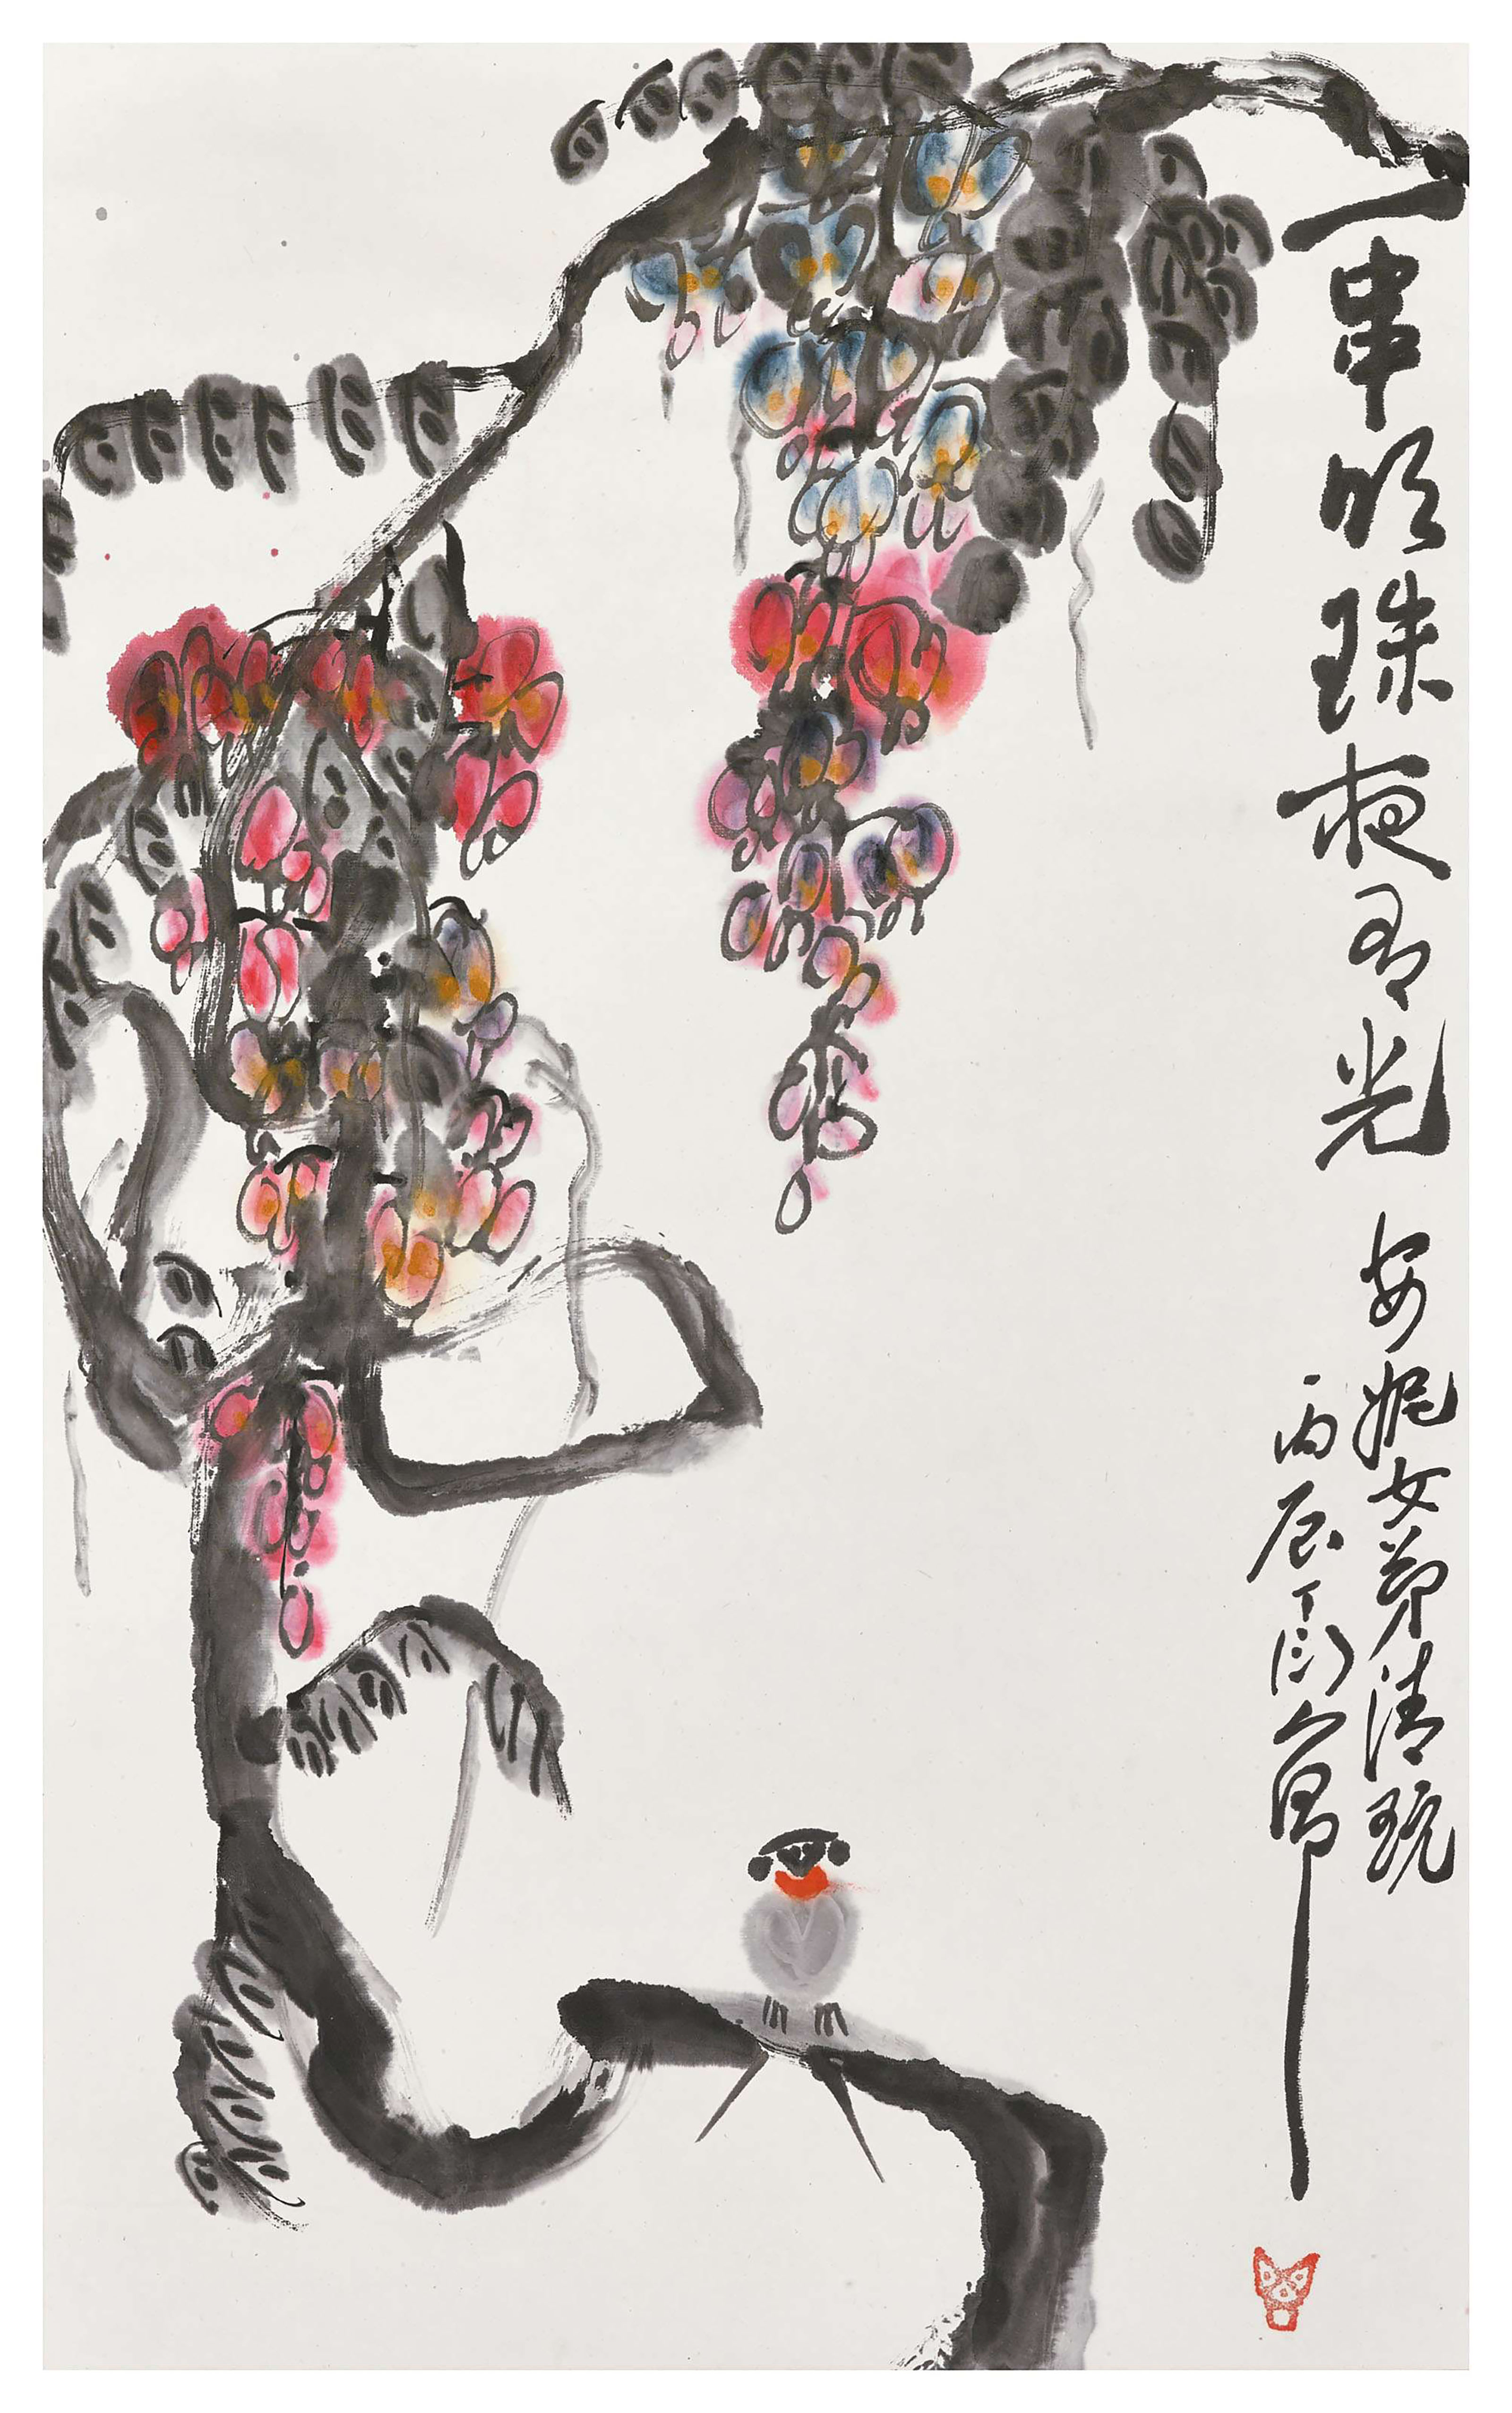 一串明珠夜有光
安妮女弟清玩
丙辰丁衍庸